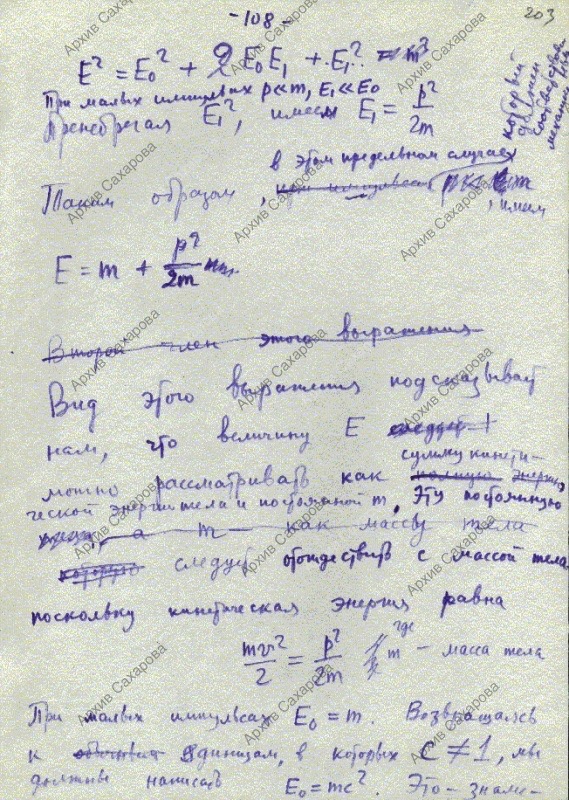 -108-
203
E² = E₀² + 2E₀E₁ + E₁²
При малых импульсах p≪m, E₁≪E₀
Пренебрегая E₁², имеем E₁ = p²/2m
в этом предельном случае
Таким образом, при импульсах p≪m
, имеем
E = m + p²/2m
Второй член этого выражения
Вид этого выражения подсказывает
нам, что величину E следует
можно рассматривать как сумму кинети-
полную энергию
ческой энергии тела и постоянной m. Эту постоянную
, а m - как массу тела
которую следует отождествить с массой тела
поскольку кинетическая энергия равна
mv²/2 = p²/2m где m - масса тела
При малых импульсах E₀ = m. Возвращаясь
к обычным единицам, в которых C ≠ 1, мы
должны написать E₀ = mc². Это - знаме-
Архив Сахарова